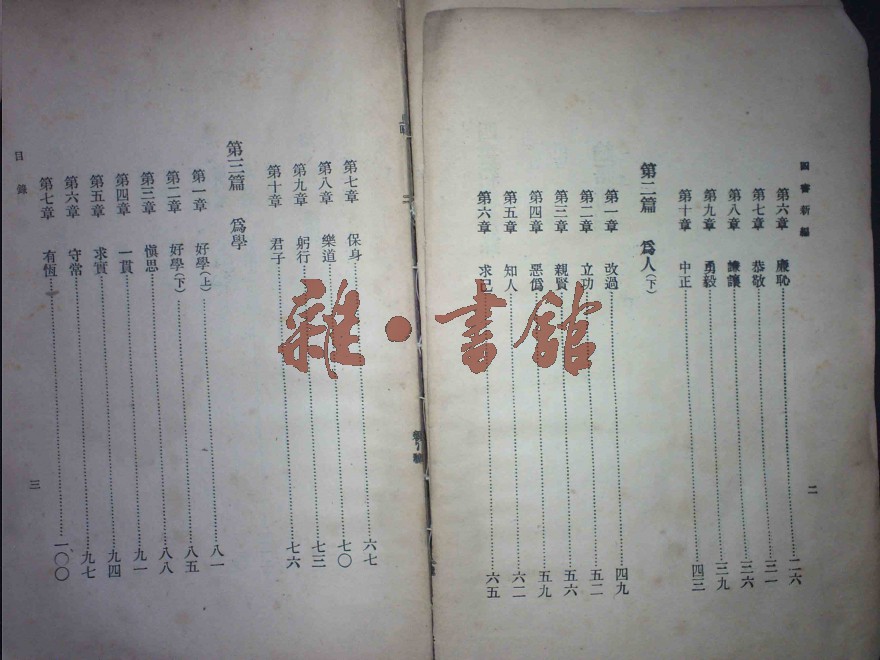 四書新編
第六章 廉恥 二六
第七章 恭敬 三一
第八章 謙讓 三六
第九章 勇毅 三九
第十章 中正 四三
第二篇 爲人(下)
第一章 改過 四九
第二章 立功 五二
第三章 親賢 五六
第四章 惡僞 五九
第五章 知人 六二
第六章 求己 六五
二
第七章 保身 六七
第八章 樂道 七〇
第九章 躬行 七三
第十章 君子 七六
第三篇 爲學
第一章 好學(上) 八一
第二章 好學(下) 八五
第三章 愼思 八八
第四章 一貫 九一
第五章 求實 九四
第六章 守常 九七
第七章 有恆 一〇〇
目錄
三
雜·書館